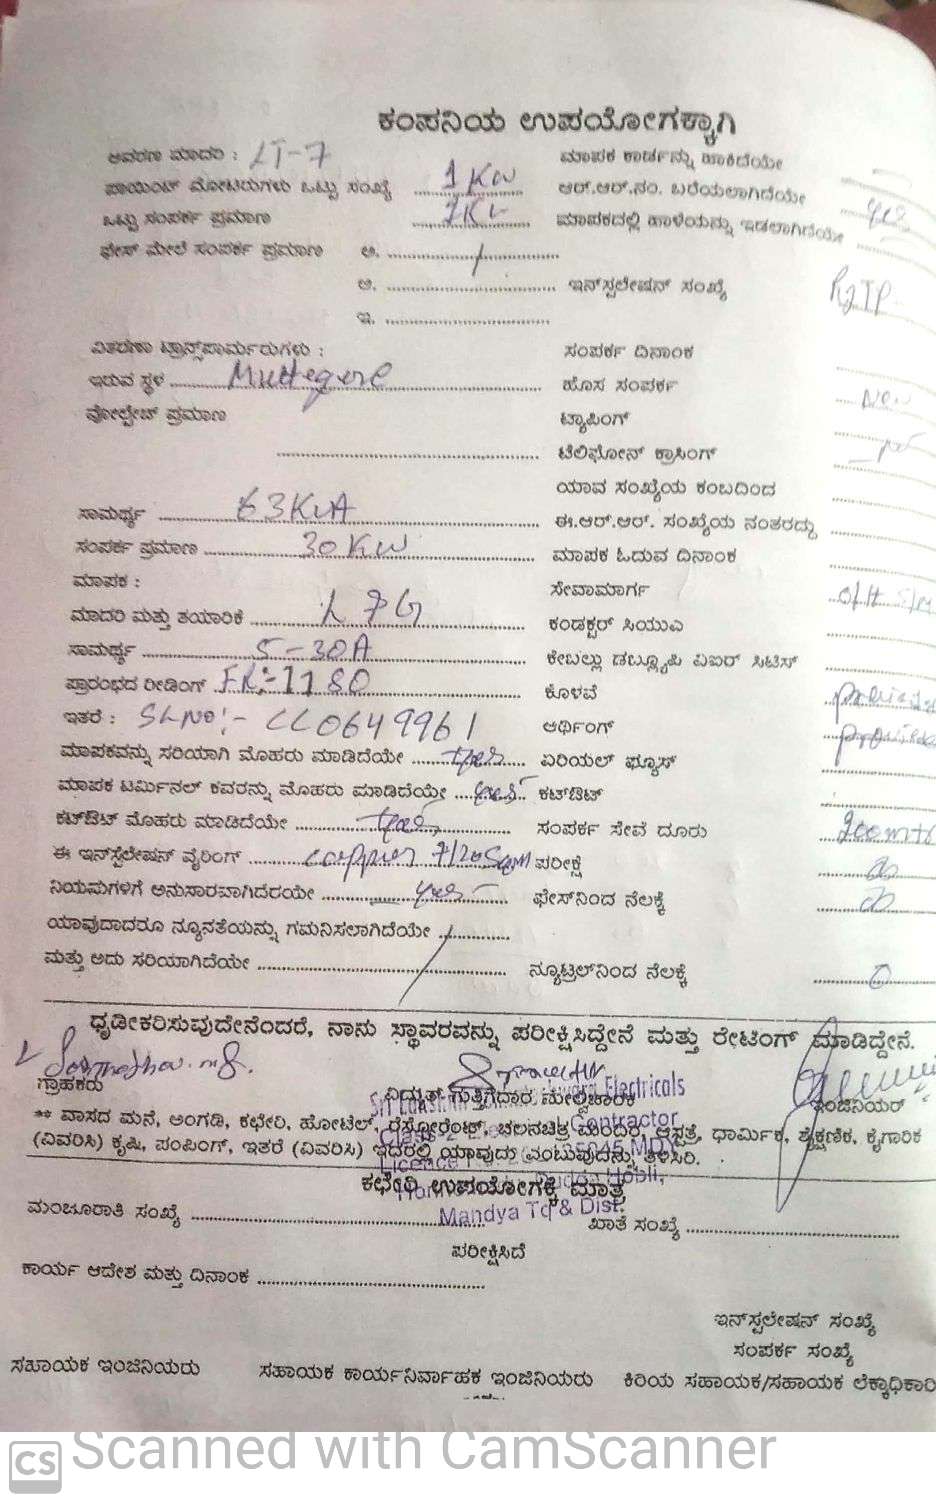 ಕಂಪನಿಯ ಉಪಯೋಗಕ್ಕಾಗಿ
ಆವರಣ ಮಾದರಿ : LT-7 ಮಾಪಕ ಕಾರ್ಡನ್ನು ಹಾಕಿದೆಯೇ
ಪಾಯಿಂಟ್ ಮೋಟರುಗಳು ಒಟ್ಟು ಸಂಖ್ಯೆ 1 KW ಆರ್.ಆರ್.ನಂ. ಬರೆಯಲಾಗಿದೆಯೇ yes
ಒಟ್ಟು ಸಂಪರ್ಕ ಪ್ರಮಾಣ ಮಾಪಕದಲ್ಲಿ ಹಾಳೆಯನ್ನು ಇಡಲಾಗಿದೆಯೇ
ಫೇಸ್ ಮೇಲೆ ಸಂಪರ್ಕ ಪ್ರಮಾಣ ಅ.
ಆ. ಇನ್‌ಸ್ಟಲೇಷನ್ ಸಂಖ್ಯೆ
ಇ.
ವಿತರಣಾ ಟ್ರಾನ್ಸ್‌ಪಾರ್ಮರುಗಳು : ಸಂಪರ್ಕ ದಿನಾಂಕ
ಇರುವ ಸ್ಥಳ Muttegere ಹೊಸ ಸಂಪರ್ಕ New
ವೋಲ್ಟೇಜ್ ಪ್ರಮಾಣ ಟ್ಯಾಪಿಂಗ್
ಟೆಲಿಫೋನ್ ಕ್ರಾಸಿಂಗ್
ಯಾವ ಸಂಖ್ಯೆಯ ಕಂಬದಿಂದ
ಸಾಮರ್ಥ್ಯ 63 KVA ಈ.ಆರ್.ಆರ್. ಸಂಖ್ಯೆಯ ನಂತರದ್ದು
ಸಂಪರ್ಕ ಪ್ರಮಾಣ 30 KW ಮಾಪಕ ಓದುವ ದಿನಾಂಕ
ಮಾಪಕ : ಸೇವಾಮಾರ್ಗ O/H
ಮಾದರಿ ಮತ್ತು ತಯಾರಿಕೆ L & G ಕಂಡಕ್ಟರ್ ಸಿಯುಎ
ಸಾಮರ್ಥ್ಯ 5-30A ಕೇಬಲ್ಲು ಡಬ್ಲ್ಯೂಪಿ ವಿಐರ್ ಸಿಟಿಸ್
ಪ್ರಾರಂಭದ ರೀಡಿಂಗ್ FR:-1180 ಕೊಳವೆ provided
ಇತರೆ : SL NO:- CC0649961 ಆರ್ಥಿಂಗ್ provided
ಮಾಪಕವನ್ನು ಸರಿಯಾಗಿ ಮೊಹರು ಮಾಡಿದೆಯೇ yes ಏರಿಯಲ್ ಫ್ಯೂಸ್
ಮಾಪಕ ಟರ್ಮಿನಲ್ ಕವರನ್ನು ಮೊಹರು ಮಾಡಿದೆಯೇ yes ಕಟ್‌ಔಟ್
ಕಟ್‌ಔಟ್ ಮೊಹರು ಮಾಡಿದೆಯೇ yes ಸಂಪರ್ಕ ಸೇವೆ ದೂರು
ಈ ಇನ್‌ಸ್ಟೆಲೇಷನ್ ವೈರಿಂಗ್ copper 7/20 ಪರೀಕ್ಷೆ
ನಿಯಮಗಳಿಗೆ ಅನುಸಾರವಾಗಿದೆರಯೇ yes ಫೇಸ್‌ನಿಂದ ನೆಲಕ್ಕೆ
ಯಾವುದಾದರೂ ನ್ಯೂನತೆಯನ್ನು ಗಮನಿಸಲಾಗಿದೆಯೇ
ಮತ್ತು ಅದು ಸರಿಯಾಗಿದೆಯೇ ನ್ಯೂಟ್ರಲ್‌ನಿಂದ ನೆಲಕ್ಕೆ
ಧೃಡೀಕರಿಸುವುದೇನೆಂದರೆ, ನಾನು ಸ್ಥಾವರವನ್ನು ಪರೀಕ್ಷಿಸಿದ್ದೇನೆ ಮತ್ತು ರೇಟಿಂಗ್ ಮಾಡಿದ್ದೇನೆ.
ಗ್ರಾಹಕರು ವಿದ್ಯುತ್ ಗುತ್ತಿಗೆದಾರ ಮೇಲ್ವಿಚಾರಕ Electricals ಇಂಜಿನಿಯರ್
** ವಾಸದ ಮನೆ, ಅಂಗಡಿ, ಕಛೇರಿ, ಹೋಟೆಲ್, ರೆಸ್ಟೋರೆಂಟ್, ಚಲನಚಿತ್ರ ಮಂದಿರ, ಆಸ್ಪತ್ರೆ, ಧಾರ್ಮಿಕ, ಶೈಕ್ಷಣಿಕ, ಕೈಗಾರಿಕ
Contractor
(ವಿವರಿಸಿ) ಕೃಷಿ, ಪಂಪಿಂಗ್, ಇತರೆ (ವಿವರಿಸಿ) ಇದರಲ್ಲಿ ಯಾವುದು ಎಂಬುವುದನ್ನು ತಿಳಿಸಿರಿ.
Licence
ಕಛೇರಿ ಉಪಯೋಗಕ್ಕೆ ಮಾತ್ರ
Hobli,
Mandya Tq & Dist.
ಮಂಜೂರಾತಿ ಸಂಖ್ಯೆ ಖಾತೆ ಸಂಖ್ಯೆ
ಪರೀಕ್ಷಿಸಿದೆ
ಕಾರ್ಯ ಆದೇಶ ಮತ್ತು ದಿನಾಂಕ
ಇನ್‌ಸ್ಟಲೇಷನ್ ಸಂಖ್ಯೆ
ಸಂಪರ್ಕ ಸಂಖ್ಯೆ
ಸಹಾಯಕ ಇಂಜಿನಿಯರು ಸಹಾಯಕ ಕಾರ್ಯನಿರ್ವಾಹಕ ಇಂಜಿನಿಯರು ಕಿರಿಯ ಸಹಾಯಕ/ಸಹಾಯಕ ಲೆಕ್ಕಾಧಿಕಾರಿ
CS Scanned with CamScanner